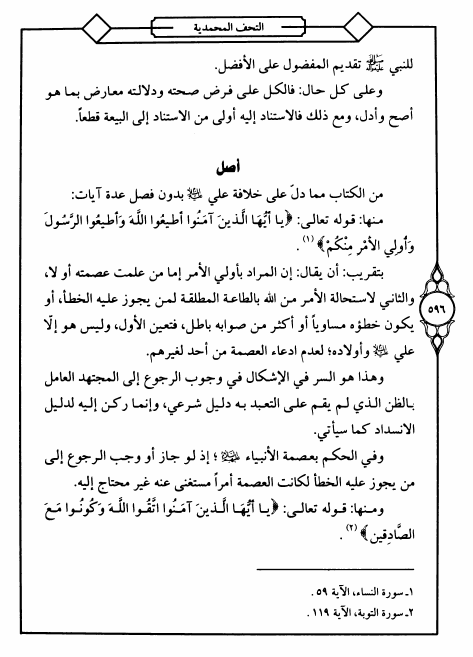 التحف المحمدية
للنبي ﷺ تقديم المفضول على الأفضل.
وعلى كل حال: فالكل على فرض صحته ودلالته معارض بما هو
أصح وأدل، ومع ذلك فالاستناد إليه أولى من الاستناد إلى البيعة قطعاً.
أصل
من الكتاب مما دلّ على خلافة علي بدون فصل عدة آيات:
منها: قوله تعالى: ﴿يا أيُّهَا الَّذينَ آمَنُوا أطيعُوا اللَّهَ وَأطيعُوا الرَّسُولَ
وَأُولِي الأمْرِ مِنْكُمْ﴾ (١).
بتقريب: أن يقال: إن المراد بأولي الأمر إما من علمت عصمته أو لا،
والثاني لاستحالة الأمر من الله بالطاعة المطلقة لمن يجوز عليه الخطأ، أو
يكون خطؤه مساوياً أو أكثر من صوابه باطل، فتعين الأول، وليس هو إلّا
علي وأولاده؛ لعدم ادعاء العصمة من أحد لغيرهم.
وهذا هو السر في الإشكال في وجوب الرجوع إلى المجتهد العامل
بالظن الذي لم يقم على التعبد به دليل شرعي، وإنما ركن إليه لدليل
الانسداد كما سيأتي.
وفي الحكم بعصمة الأنبياء ؛ إذ لو جاز أو وجب الرجوع إلى
من يجوز عليه الخطأ لكانت العصمة أمراً مستغنى عنه غير محتاج إليه.
ومنها: قوله تعالى: ﴿يا أيُّهَا الَّذينَ آمَنُوا اتَّقُوا اللَّهَ وَكُونُوا مَعَ
الصَّادِقين﴾ (٢).
٥٩٦
١ـ سورة النساء، الآية ٥٩.
٢ـ سورة التوبة، الآية ١١٩.